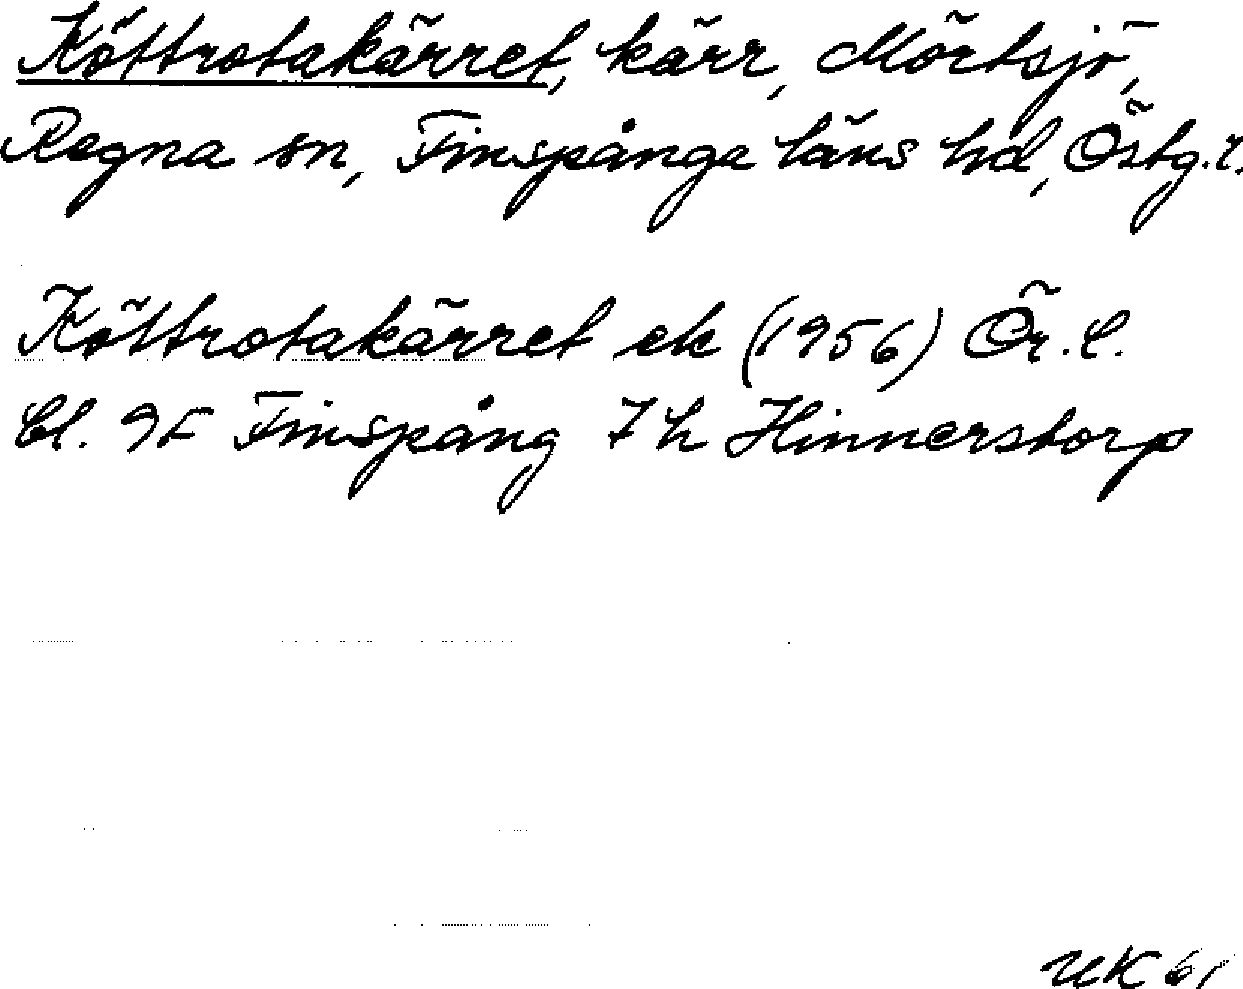 Köttrotakärret, kärr, Mörtsjö,
Regna sn, Finspånga läns hd, Östg.l.
Köttrotakärret ek (1956) Ör.l.
bl. 9F Finspång 7h Hinnerstorp
UK 61